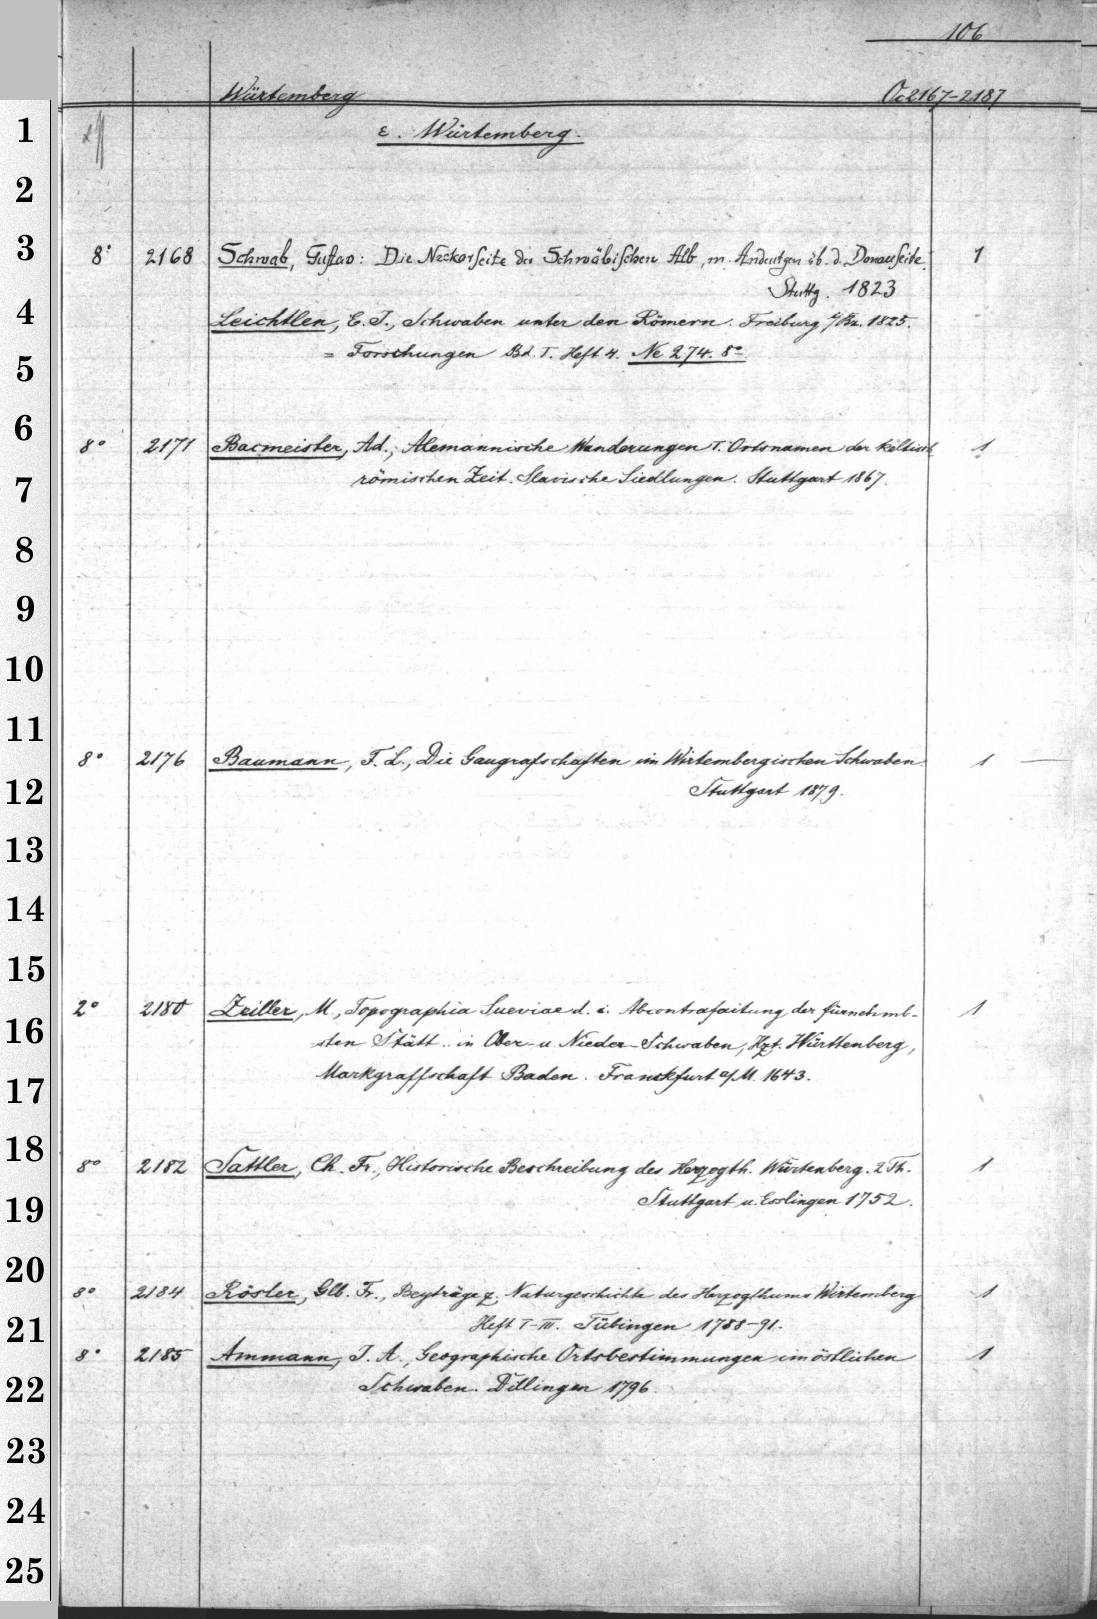 106
Würtemberg Oc 2167-2187
1 ε. Würtemberg.
2
3 8° 2168 Schwab, Gustav: Die Neckarseite der Schwäbischen Alb, m. Andeutgen üb. d. Donauseite. 1
Stuttg. 1823
4 Leichtlen, E. J., Schwaben unter den Römern. Freiburg i/Br. 1825.
5 = Forschungen Bd. I. Heft 4. Ne 274. 8°
6 8° 2171 Bacmeister, Ad., Alemannische Wanderungen I. Ortsnamen der keltisch 1
7 römischen Zeit. Slavische Siedlungen. Stuttgart 1867.
8
9
10
11
8° 2176 Baumann, F. L., Die Gaugrafschaften im Wirtembergischen Schwaben. 1
12 Stuttgart 1879.
13
14
15
2° 2180 Zeiller, M., Topographia Sueviae d. i. Abcontrafaitung der fürnehmb-
16 sten Stätt.. in Ober- u. Nieder-Schwaben, Hzt. Württenberg, 1
17 Markgraffschaft Baden. Franckfurt a/M. 1643.
18 8° 2182 Sattler, Ch. Fr., Historische Beschreibung des Herzogth. Würtenberg. 2 Th. 1
19 Stuttgart u. Esslingen 1752.
20 8° 2184 Rösler, Glb. Fr., Beyträge z. Naturgeschichte des Herzogthums Wirtemberg 1
21 Heft I-III. Tübingen 1788-91.
8° 2185 Ammann, J. A., Geographische Ortsbestimmungen im östlichen 1
22 Schwaben. Dillingen 1796.
23
24
25